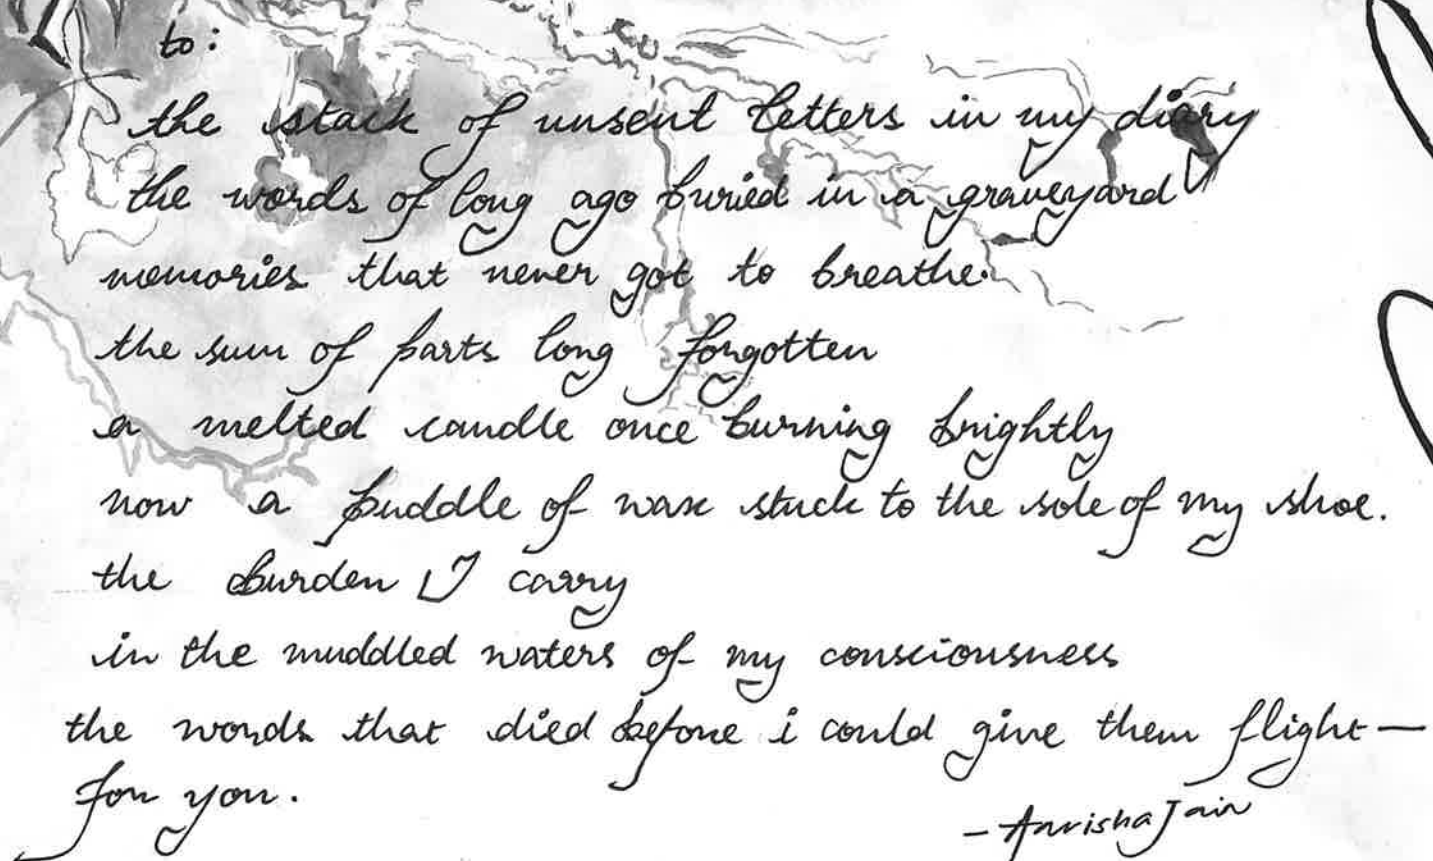 to:
the stack of unsent letters in my diary
the words of long ago buried in a graveyard
memories that never got to breathe.
the sum of parts long forgotten
a melted candle once burning brightly
now a puddle of wax stuck to the sole of my shoe.
the burden I carry
in the muddled waters of my consciousness
the words that died before i could give them flight—
for you.
- Anrisha Jain